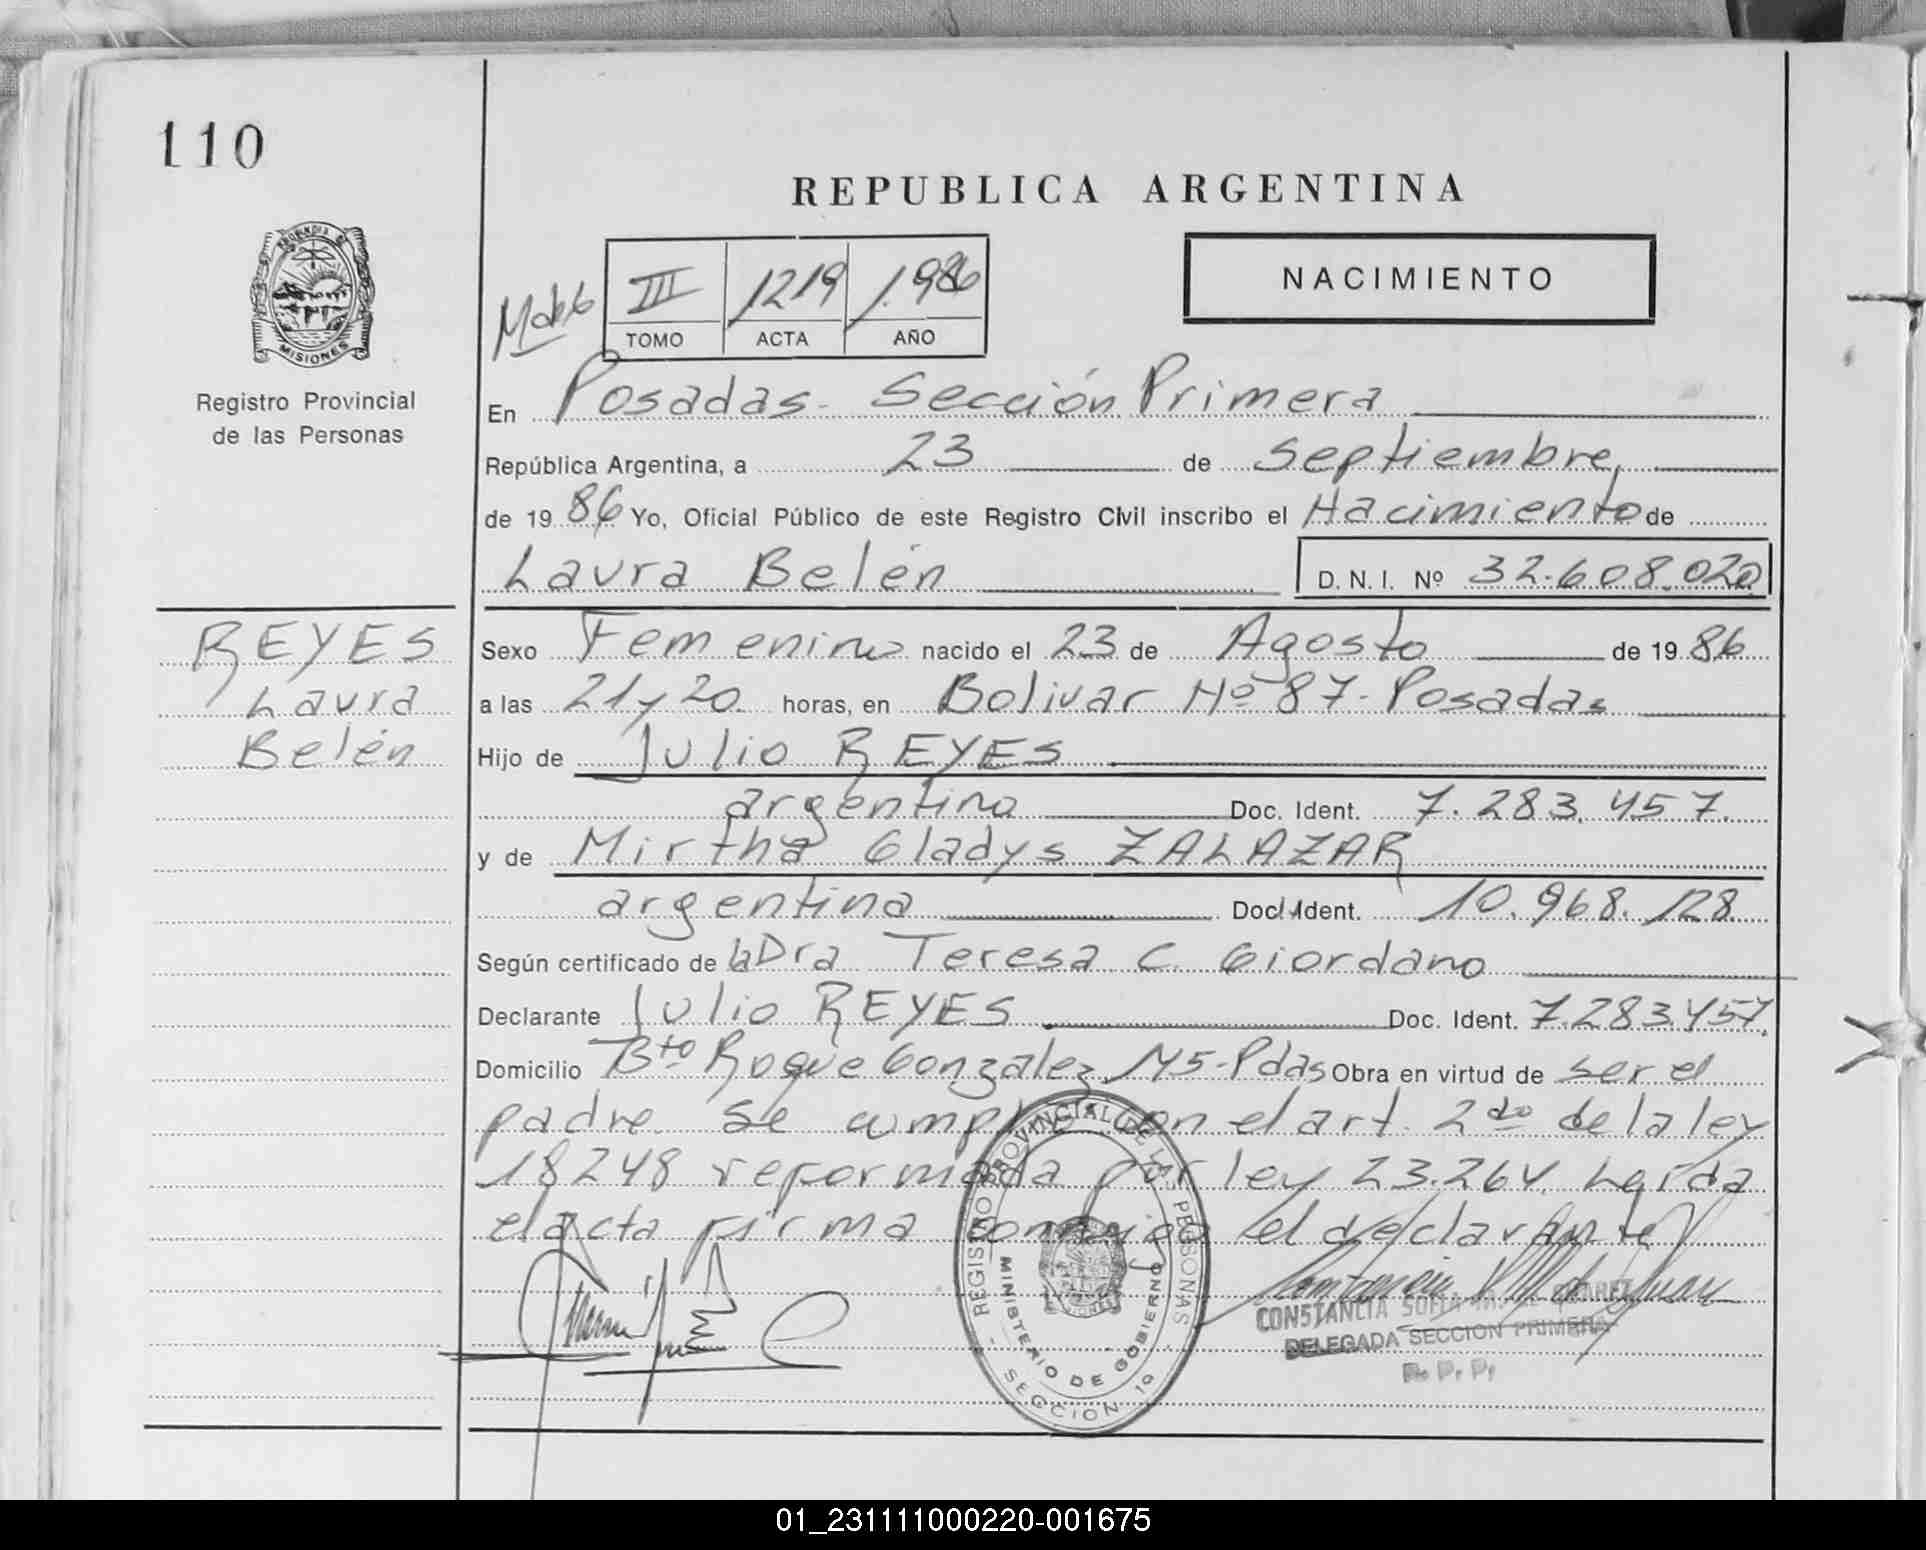 110
REPUBLICA ARGENTINA
PROVINCIA DE
MISIONES
Registro Provincial
de las Personas
III 1219 1.986
TOMO ACTA AÑO
NACIMIENTO
En Posadas - Sección Primera
República Argentina, a 23 de Septiembre,
de 19 86 Yo, Oficial Público de este Registro Civil inscribo el Nacimiento de
Laura Belén D. N. I. Nº 32.608.020
REYES
Laura
Belén
Sexo Femenino nacido el 23 de Agosto de 19 86
a las 21 y 20 horas, en Bolivar Nº 87 - Posadas
Hijo de Julio REYES
argentino Doc. Ident. 7.283.457.
y de Mirtha Gladys ZALAZAR
argentina Doc. Ident. 10.968.128
Según certificado de la Dra Teresa C. Giordano
Declarante Julio REYES Doc. Ident. 7.283.457.
Domicilio Bto Roque Gonzalez M5 - Pdas Obra en virtud de ser el
padre. Se cumplió con el art. 2do de la ley
18248 reformada por ley 23.264. Leída
el acta firma conmigo el declarante
REGISTRO PROVINCIAL DE LAS PERSONAS
MINISTERIO DE GOBIERNO
SECCION 1º
CONSTANCIA SOFIA M. DE SUAREZ
DELEGADA SECCION PRIMERA
R. P. P.
01_231111000220-001675